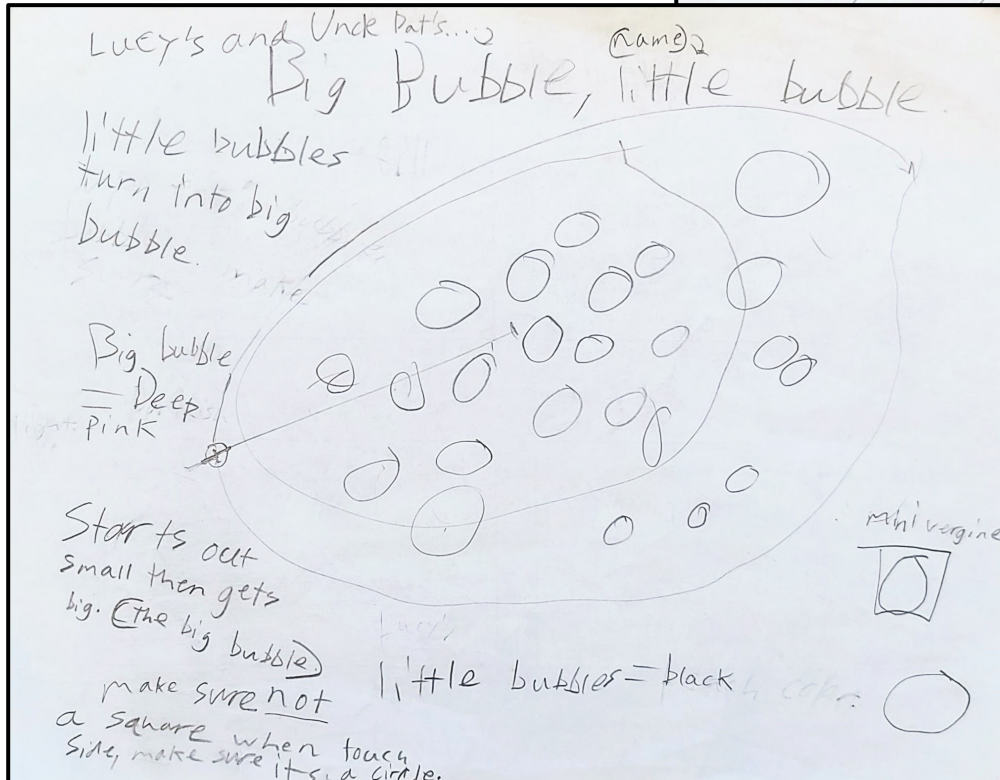 Lucy's and Uncle Pat's...
(name)
Big Bubble, little bubble.
little bubbles
turn into big
bubble.
Big bubble
= Deep
Pink
Starts out
small then gets
big. (the big bubble)
make sure not
a square when touch
side, make sure it's a circle.
little bubbles = black
mini vergine